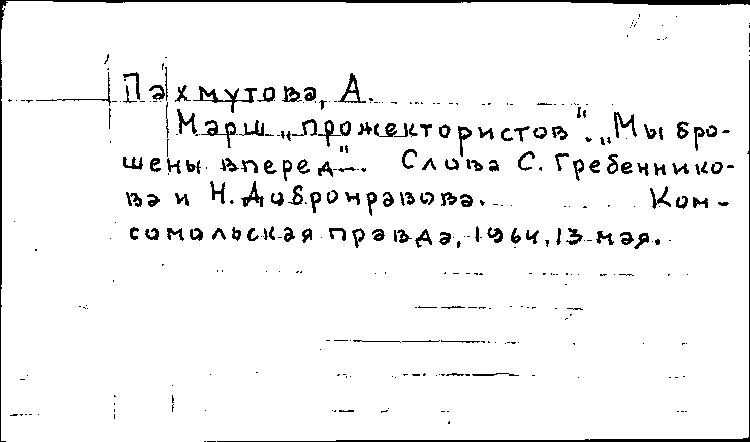 Пахмутова, А.
Марш „прожектористов". „Мы бро-
шены вперед". Слова С. Гребеннико-
ва и Н. Добронравова. Ком-
сомольская правда, 1964, 13 мая.